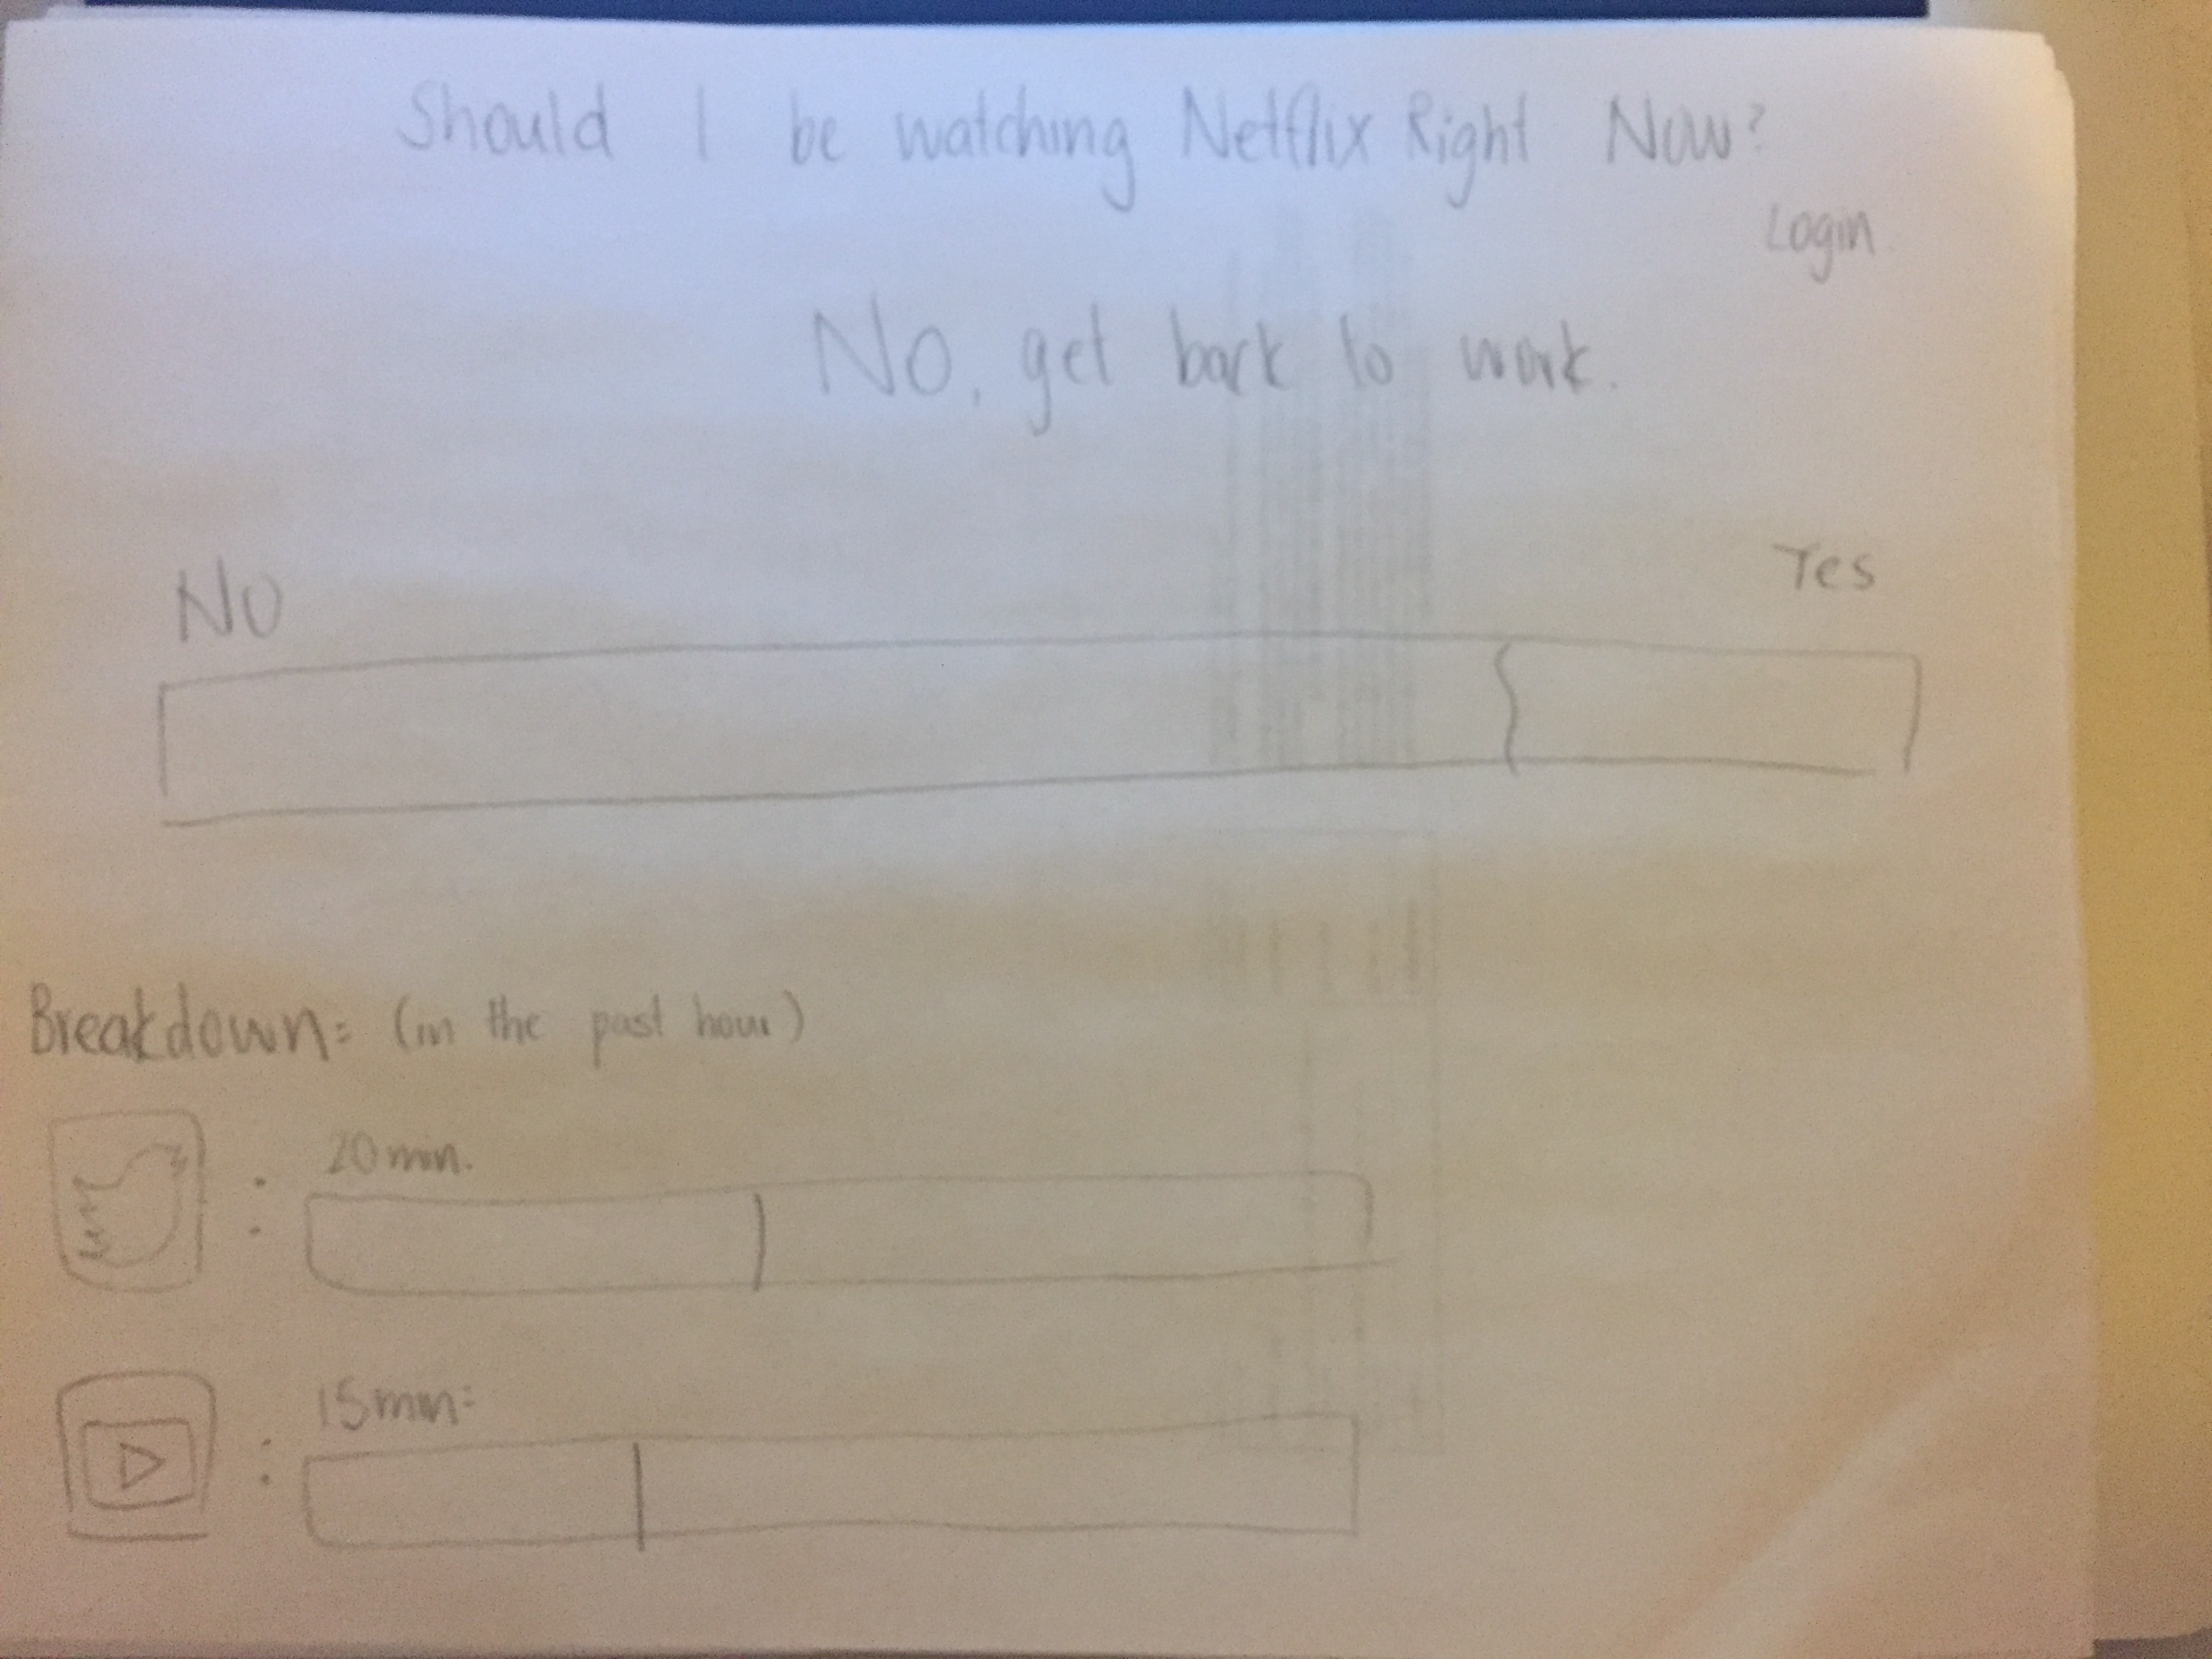 Should I be watching Netflix Right Now?
Login
No, get back to work.
No Yes
Breakdown: (in the past hour)
: 20 min.
: 15 min.